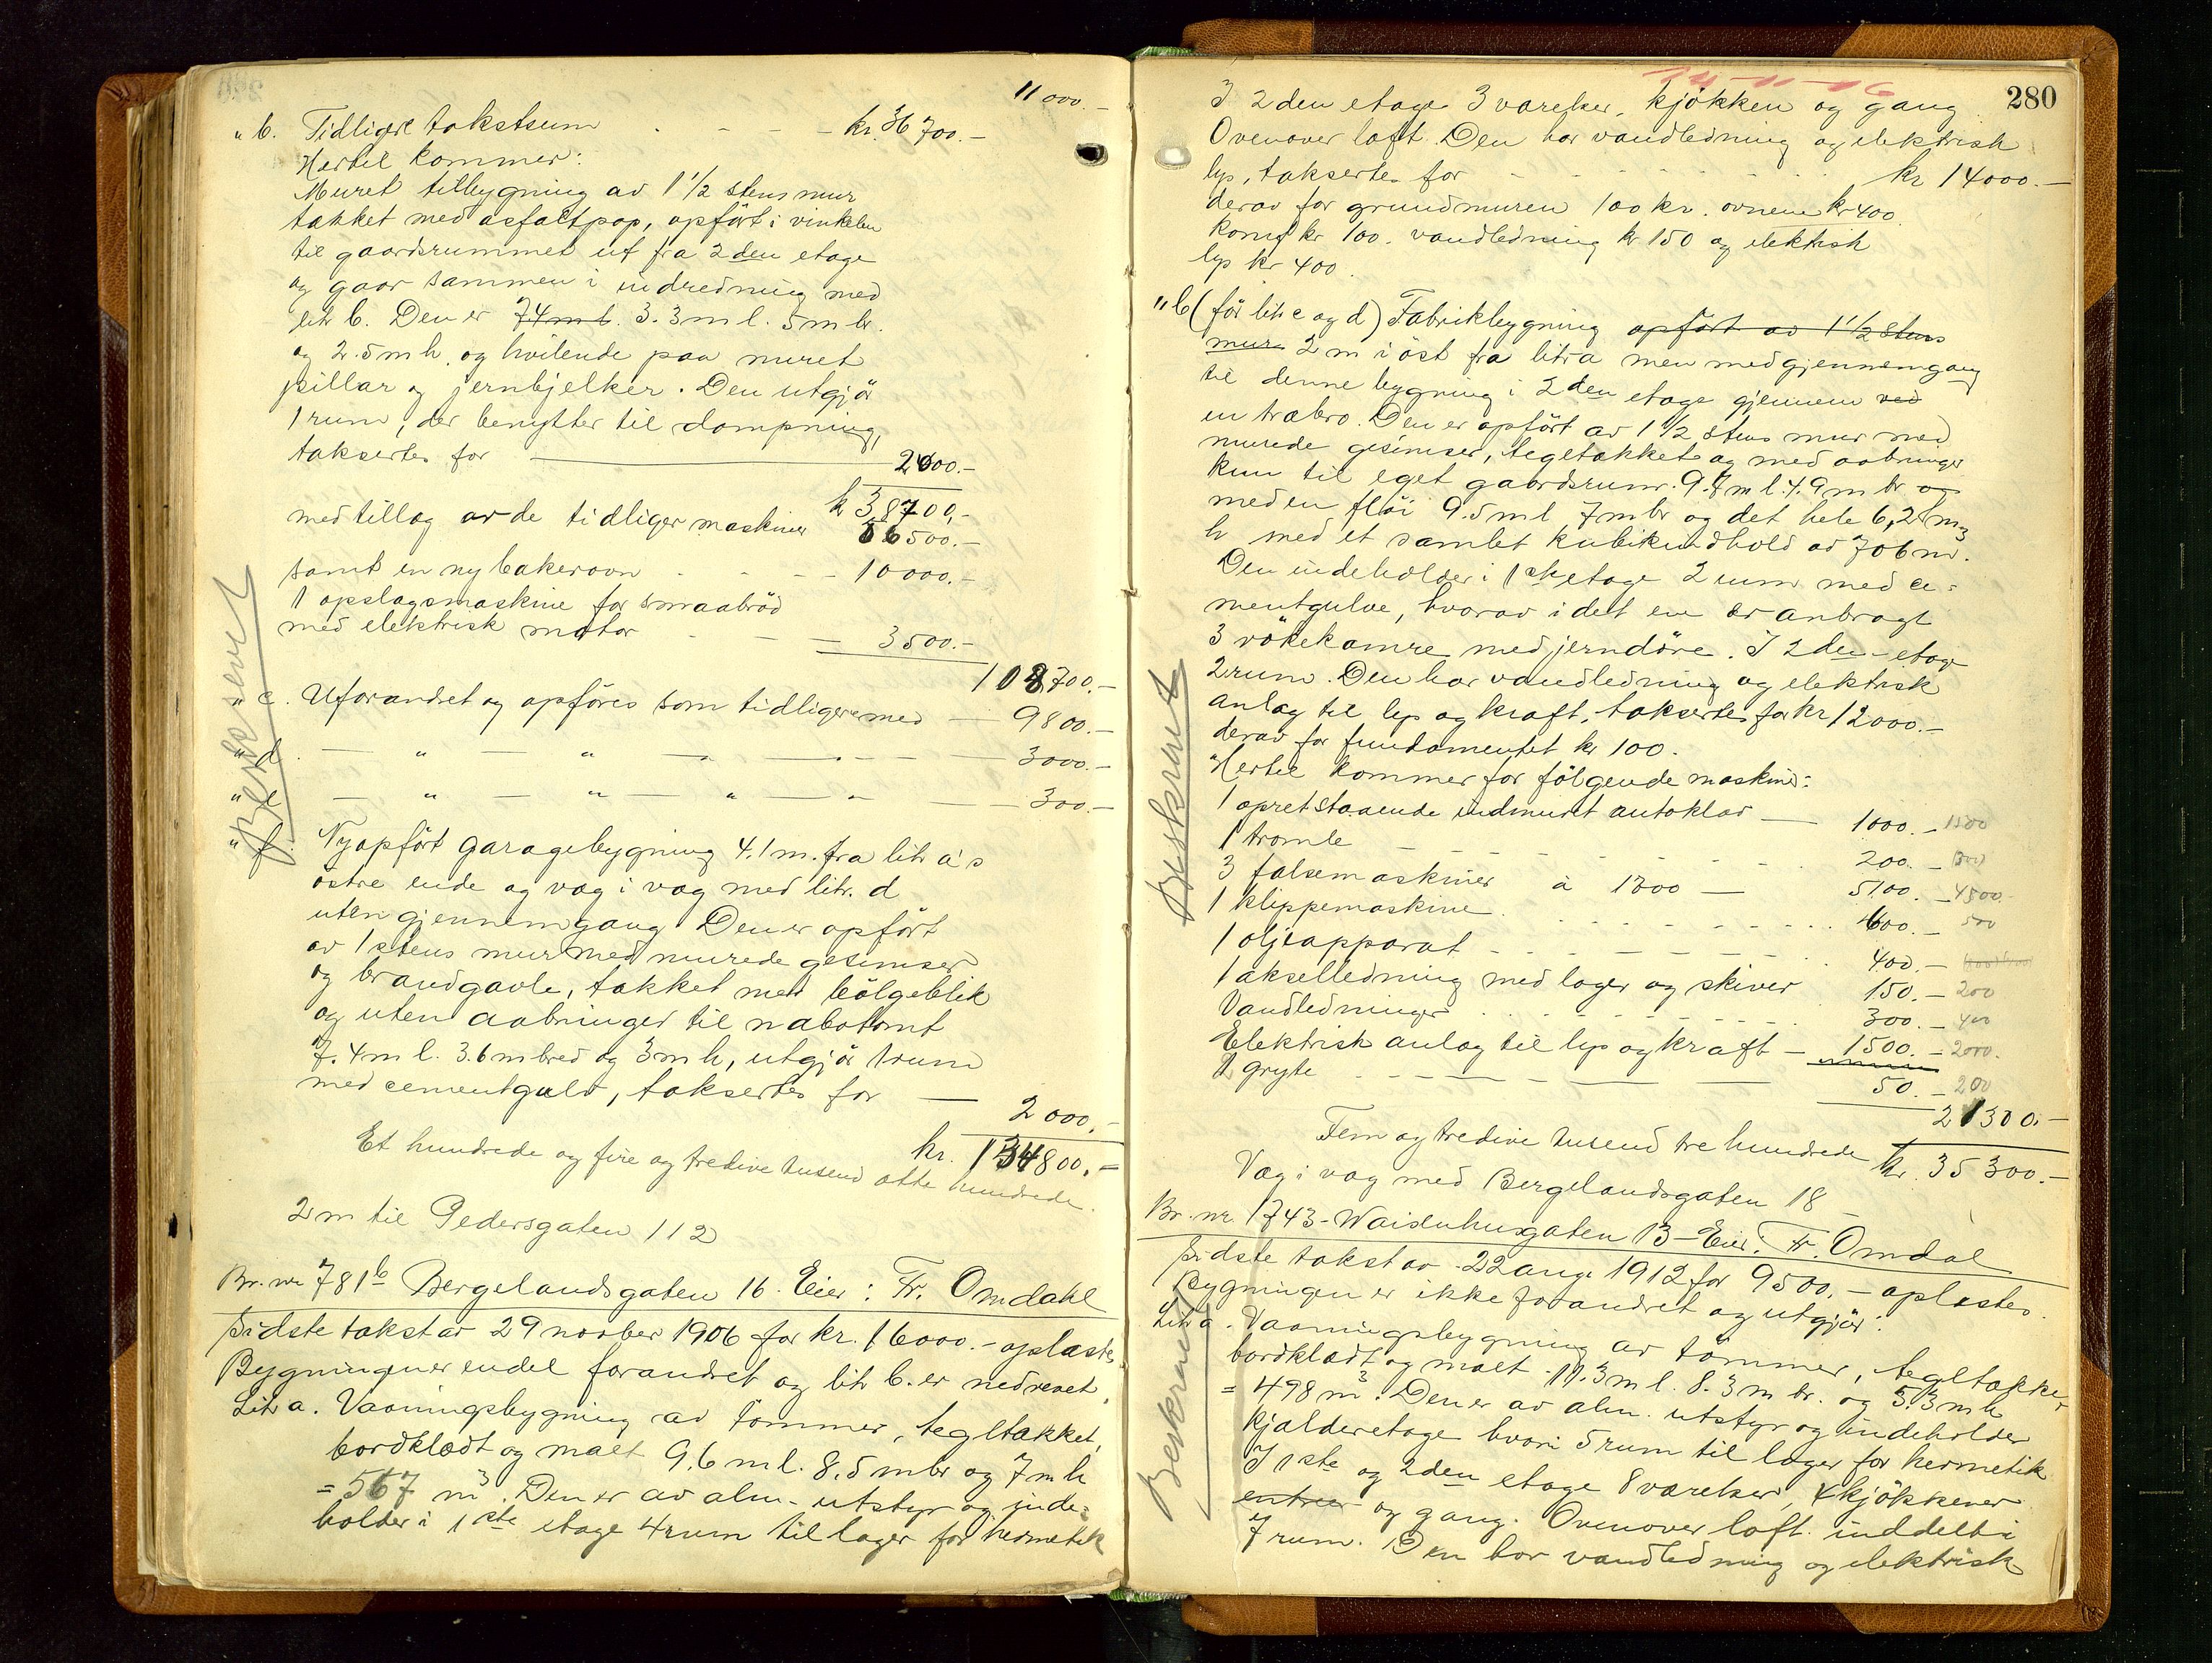 11 000.-
" b. Tidligere takstsum - - - kr. 36 700.-
Hertil kommer:
Muret tilbygning av 1 1/2 stens mur
takket med asfaltpap, opført i vinkelen
til gaardsrummet ut fra 2den etage
og gaar sammen i indredning med
litr b. Den er 74 m l. 3.3 m l. 5 m br.
og 2.5 m h. og hvilende paa muret
pillar og jernbjelker. Den utgjør
1 rum, der benyttes til dampning,
takseres for 2000.-
kr 38700.-
med tillæg av de tidligere maskiner 56500.-
samt en ny bakerovn - - - 10000.-
1 opslagsmaskine for smaabrød
med elektrisk motor - - - 3500.-
108700.-
" c. Uforandret og opføres som tidligere med - 9800.-
" d. — " — " — " — " — 3000.-
" e — " — " — " — " — 300.-
" f. Nyopført garagebygning 4.1 m. fra litr a's
østre ende og væg i væg med litr. d
uten gjennemgang. Den er opført
av 1 stens mur med murede gesimser
og brandgavle, takket med bølgeblik
og uten aabninger til nabotomt
7.4 m l. 3.6 m bred og 3 m h, utgjør 1 rum
med cementgulv, takseres for — 2 000.-
kr. 134800.-
Et hundrede og fire og tredive tusend otte hundrede.
2 m til Pedersgaten 112
Br. nr 781b Bergelandsgaten 16. Eier: Fr. Omdahl
Sidste takst av 29 novber 1906 for kr. 16000.- oplæstes
Bygningen er endel forandret og litr b. er nedrevet.
Litr a. Vaaningsbygning av tømmer, tegltakket,
bordklædt og malt 9.6 m l. 8.5 m br og 7 m h
= 567 m3. Den er av alm. utstyr og inde-
holder i 1ste etage 4 rum til lager for hermetik
Beskrevet
24-11-16
280
I 2den etage 3 værelser, kjøkken og gang
Ovenover loft. Den har vandledning og elektrisk
lys, takseres for - - - kr 14000.-
derav for grundmuren 100 kr. ovnene kr 400
komf kr 100. vandledning kr 150 og elektrisk
lys kr 400.
" b (før litr c og d) Fabrikbygning opført av 1 1/2 stens
mur 2 m i øst fra litr a men med gjennemgang
til denne bygning i 2den etage gjennem ved
en træbro. Den er opført av 1 1/2 stens mur med
murede gesimser, tegltakket og med aabninger
kun til eget gaardsrum. 9.8 m l. 4.9 m br. og
med en fløi 9.5 m l 7 m br og det hele 6,25 m
h med et samlet kubikindhold av 706 m3.
Den indeholder i 1ste etage 2 rum med ce-
mentgulve, hvorav i det ene er anbragt
3 røkekamre med jerndøre. I 2den etage
2 rum. Den har vandledning og elektrisk
anlæg til lys og kraft, takseres for kr 12000.-
derav for fundamentet kr 100.
Hertil kommer for følgende maskiner:
1 opretstaaende indmuret autoklav — 1000.- 1500
1 tromle - - - 200.- 300
3 falsemaskiner à 1700 — 5100.- 4500.-
1 klippemaskine - - - 400.- 500
1 oljeapparat - - - 400.-
1 akselledning med lager og skiver 150.- 200
Vandledninger - - - 300.- 400
Elektrisk anlæg til lys og kraft - 1500.- 2000.
1 gryte - - - 50.- 200
21300.-
Fem og tredive tusend tre hundrede kr. 35300.-
Væg i væg med Bergelandsgaten 18
Br. nr. 1743 - Waisenhusgaten 13 - Eier. Fr. Omdal
Sidste takst av 22 aug. 1912 for 9500.- oplæstes.
Bygningen er ikke forandret og utgjør:
Litr a. Vaaningsbygning av tømmer, tegltakket,
bordklædt og malt. 11.3 m l. 8.3 m br. og 5.3 m h
= 498 m3. Den er av alm. utstyr og indeholder
kjælderetage hvori 5 rum til lager for hermetik
I 1ste og 2den etage 8 værelser, 4 kjøkkener
entreer og gang. Ovenover loft inddelt i
7 rum. Den har vandledning og elektrisk
Beskrevet
Beskrevet